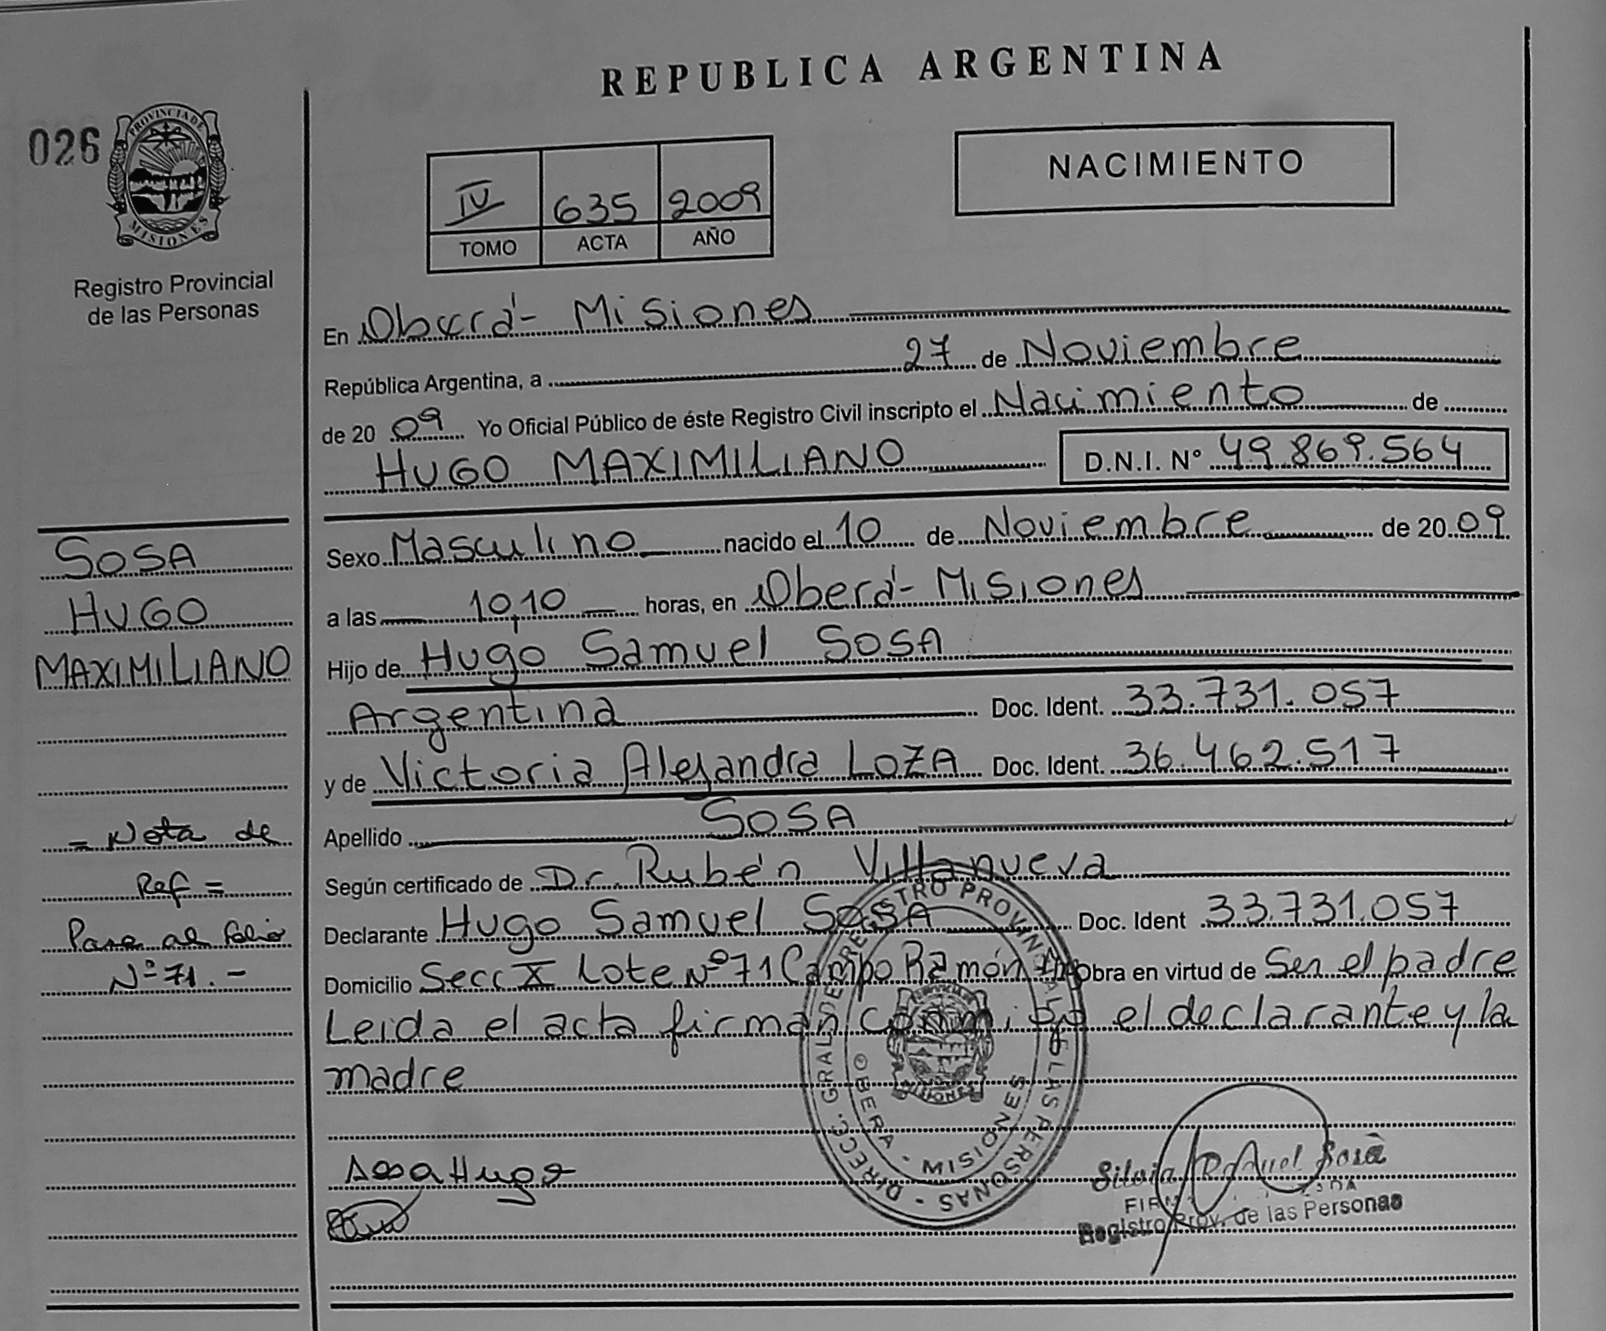 REPUBLICA ARGENTINA
026
PROVINCIA DE
MISIONES
Registro Provincial
de las Personas
IV 635 2009
TOMO ACTA AÑO
NACIMIENTO
En Oberá - Misiones
República Argentina, a 27 de Noviembre
de 2009 Yo Oficial Público de éste Registro Civil inscripto el Nacimiento de
HUGO MAXIMILIANO D.N.I. N° 49.869.564
Sexo Masculino nacido el 10 de Noviembre de 2009
a las 10,10 horas, en Oberá - Misiones
Hijo de Hugo Samuel SOSA
Argentina Doc. Ident. 33.731.057
y de Victoria Alejandra LOZA Doc. Ident. 36.462.517
Apellido SOSA
Según certificado de Dr. Rubén Villanueva
Declarante Hugo Samuel SOSA Doc. Ident 33.731.057
Domicilio Secc X Lote N° 71 Campo Ramón Obra en virtud de Ser el padre
Leida el acta firman conmigo el declarante y la
madre
SOSA
HUGO
MAXIMILIANO
= Nota de
Ref =
Pase al folio
N° 71.-
Sosa Hugo
DIRECC. GRAL. DE REGISTRO PROVINCIAL DE LAS PERSONAS
OBERA - MISIONES
Silvia Raquel Sosa
Registro Prov. de las Personas